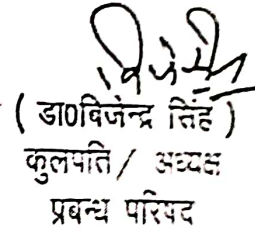 ( डा0विजेन्द्र सिंह )
कुलपति / अध्यक्ष
प्रबन्ध परिषद